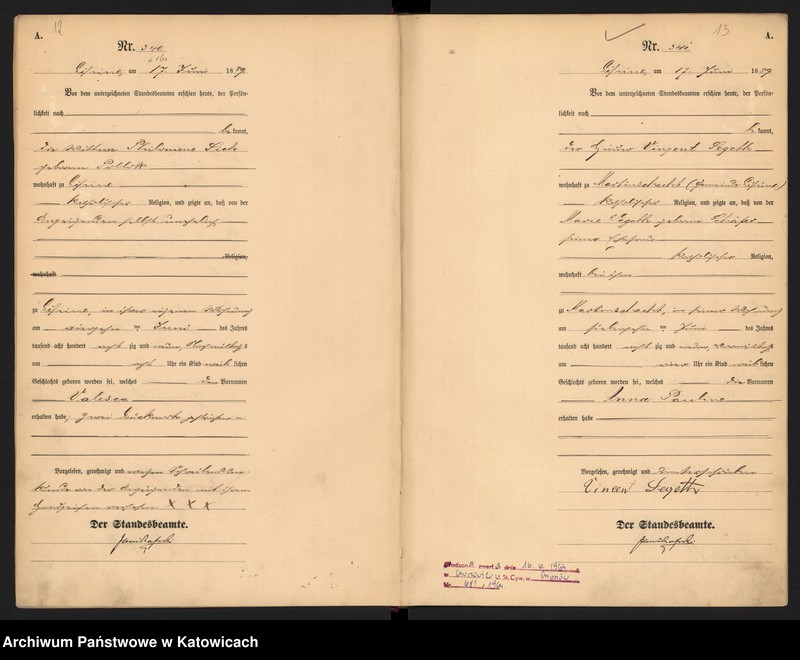 A.
12
Nr. 340
am 17 Juni 1889
Vor dem unterzeichneten Standesbeamten erschien heute, der Persön-
lichkeit nach
be kannt,
die Wittwe Philomene
geboren Pollok
wohnhaft zu
katholischer Religion, und zeigte an, daß von der
Anzeigenden selbst unehelich
Religion,
wohnhaft
zu in ihrer eigenen Wohnung
am vierzehn ten Juni des Jahres
tausend acht hundert acht zig und neun, Nachmittags
um acht Uhr ein Kind weib lichen
Geschlechts geboren worden sei, welches den Vornamen
Valesca
erhalten habe; zwei Druckworte gestrichen
Vorgelesen, genehmigt und wegen Schreibens Un-
kunde von der Anzeigenden mit ihrem
Handzeichen versehen X X X
Der Standesbeamte.
13
A.
Nr. 341
am 17 Juni 1889
Vor dem unterzeichneten Standesbeamten erschien heute, der Persön-
lichkeit nach
be kannt,
der Häuer Vincent Segeth
wohnhaft zu Martinschacht (Gemeinde
katholischer Religion, und zeigte an, daß von der
Marie Segeth geborene Schäfer
seiner Ehefrau
katholischer Religion,
wohnhaft bei ihm
zu Martinschacht, in seiner Wohnung
am siebzehn ten Juni des Jahres
tausend acht hundert acht zig und neun, Vormittags
um vier Uhr ein Kind weib lichen
Geschlechts geboren worden sei, welches die Vornamen
Anna Pauline
erhalten habe
Vorgelesen, genehmigt und unterschrieben
Vincent Segeth
Der Standesbeamte.
zmarł a dnia 16. 6. 1964
w U. St. Cyw. w
Nr.
Archiwum Państwowe w Katowicach